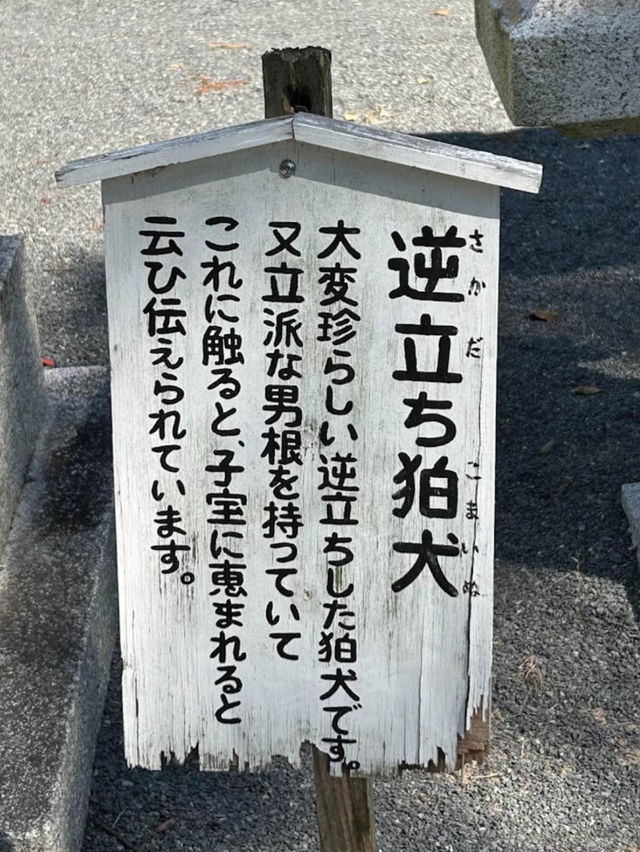 逆立ち狛犬
さかだ こまいぬ
大変珍らしい逆立ちした狛犬です。
又立派な男根を持っていて
これに触ると、子宝に恵まれると
云ひ伝えられています。